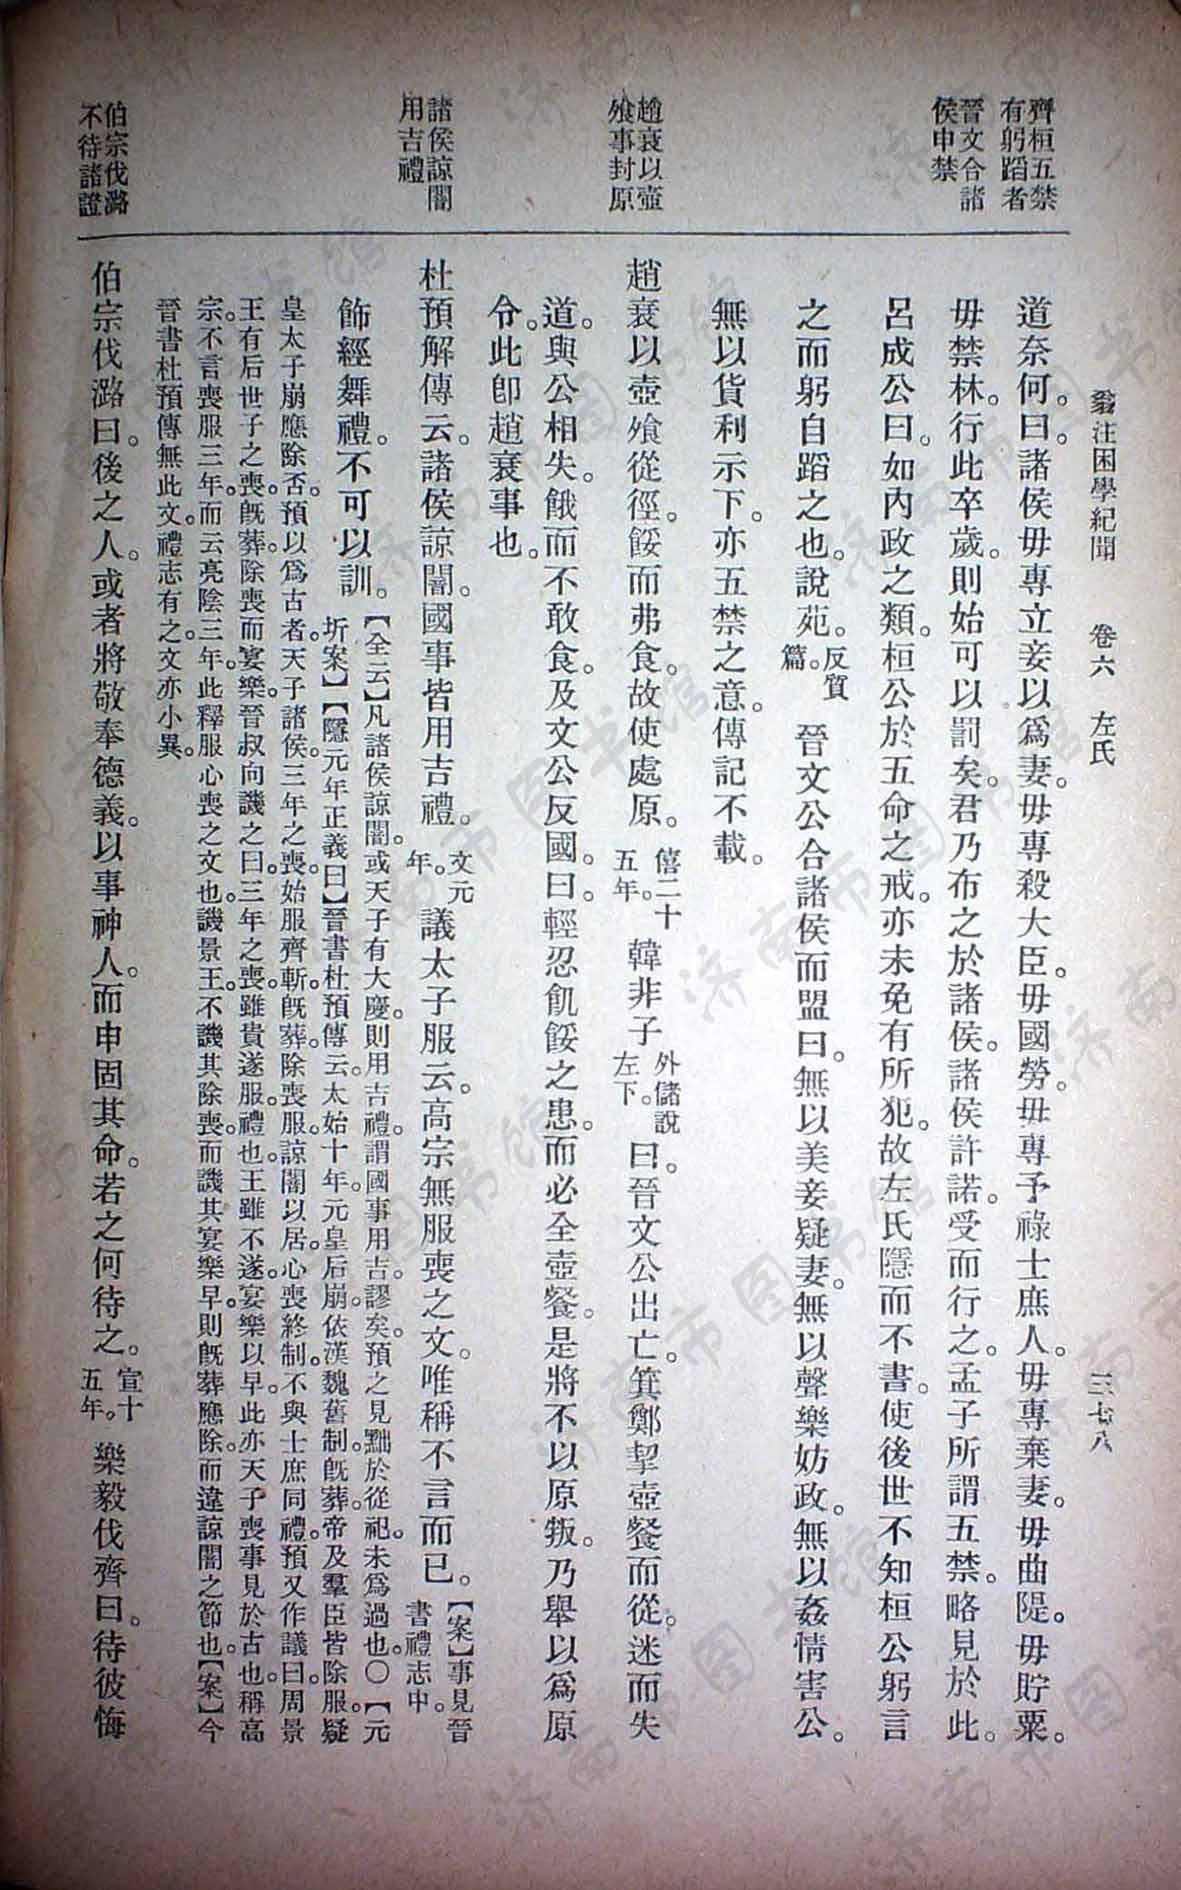 翁注困學紀聞　卷六　左氏　三七八
齊桓五禁
有躬蹈者
晉文合諸
侯申禁
道奈何。曰。諸侯毋專立妾以爲妻。毋專殺大臣。毋國勞。毋專予祿士庶人。毋專棄妻。毋曲隄。毋貯粟。
毋禁林。行此卒歲。則始可以罰矣。君乃布之於諸侯。諸侯許諾。受而行之。孟子所謂五禁。略見於此。
呂成公曰。如內政之類。桓公於五命之戒。亦未免有所犯。故左氏隱而不書。使後世不知桓公躬言
之而躬自蹈之也。說苑。反質篇。晉文公合諸侯而盟曰。無以美妾疑妻。無以聲樂妨政。無以姦情害公。
無以貨利示下。亦五禁之意。傳記不載。
趙衰以壺
飱事封原
趙衰以壺飱從徑。餒而弗食。故使處原。僖二十五年。韓非子外儲說左下。曰。晉文公出亡。箕鄭挈壺餐而從。迷而失
道。與公相失。餓而不敢食。及文公反國。曰。輕忍飢餒之患。而必全壺餐。是將不以原叛。乃舉以爲原
令。此卽趙衰事也。
諸侯諒闇
用吉禮
杜預解傳云。諸侯諒闇。國事皆用吉禮。文元年。議太子服云。高宗無服喪之文。唯稱不言而已。【案】事見晉書禮志中。
飾經舞禮。不可以訓。【全云】凡諸侯諒闇。或天子有大慶。則用吉禮。謂國事用吉。謬矣。預之見黜於從祀。未爲過也。〇【元
圻案】【隱元年正義曰】晉書杜預傳云。太始十年。元皇后崩。依漢魏舊制。旣葬。帝及羣臣皆除服。疑
皇太子崩應除否。預以爲古者。天子諸侯。三年之喪。始服齊斬。旣葬。除喪服。諒闇以居。心喪終制。不與士庶同禮。預又作議曰。周景
王有后世子之喪。旣葬。除喪而宴樂。晉叔向譏之曰。三年之喪。雖貴遂服。禮也。王雖不遂。宴樂以早。此亦天子喪事見於古也。稱高
宗。不言喪服三年。而云亮陰三年。此釋服心喪之文也。譏景王。不譏其除喪。而譏其宴樂早。則旣葬應除。而違諒闇之節也。【案】今
晉書杜預傳無此文。禮志有之。文亦小異。
伯宗伐潞
不待諸證
伯宗伐潞曰。後之人。或者將敬奉德義。以事神人。而申固其命。若之何待之。宣十五年。樂毅伐齊曰。待彼悔